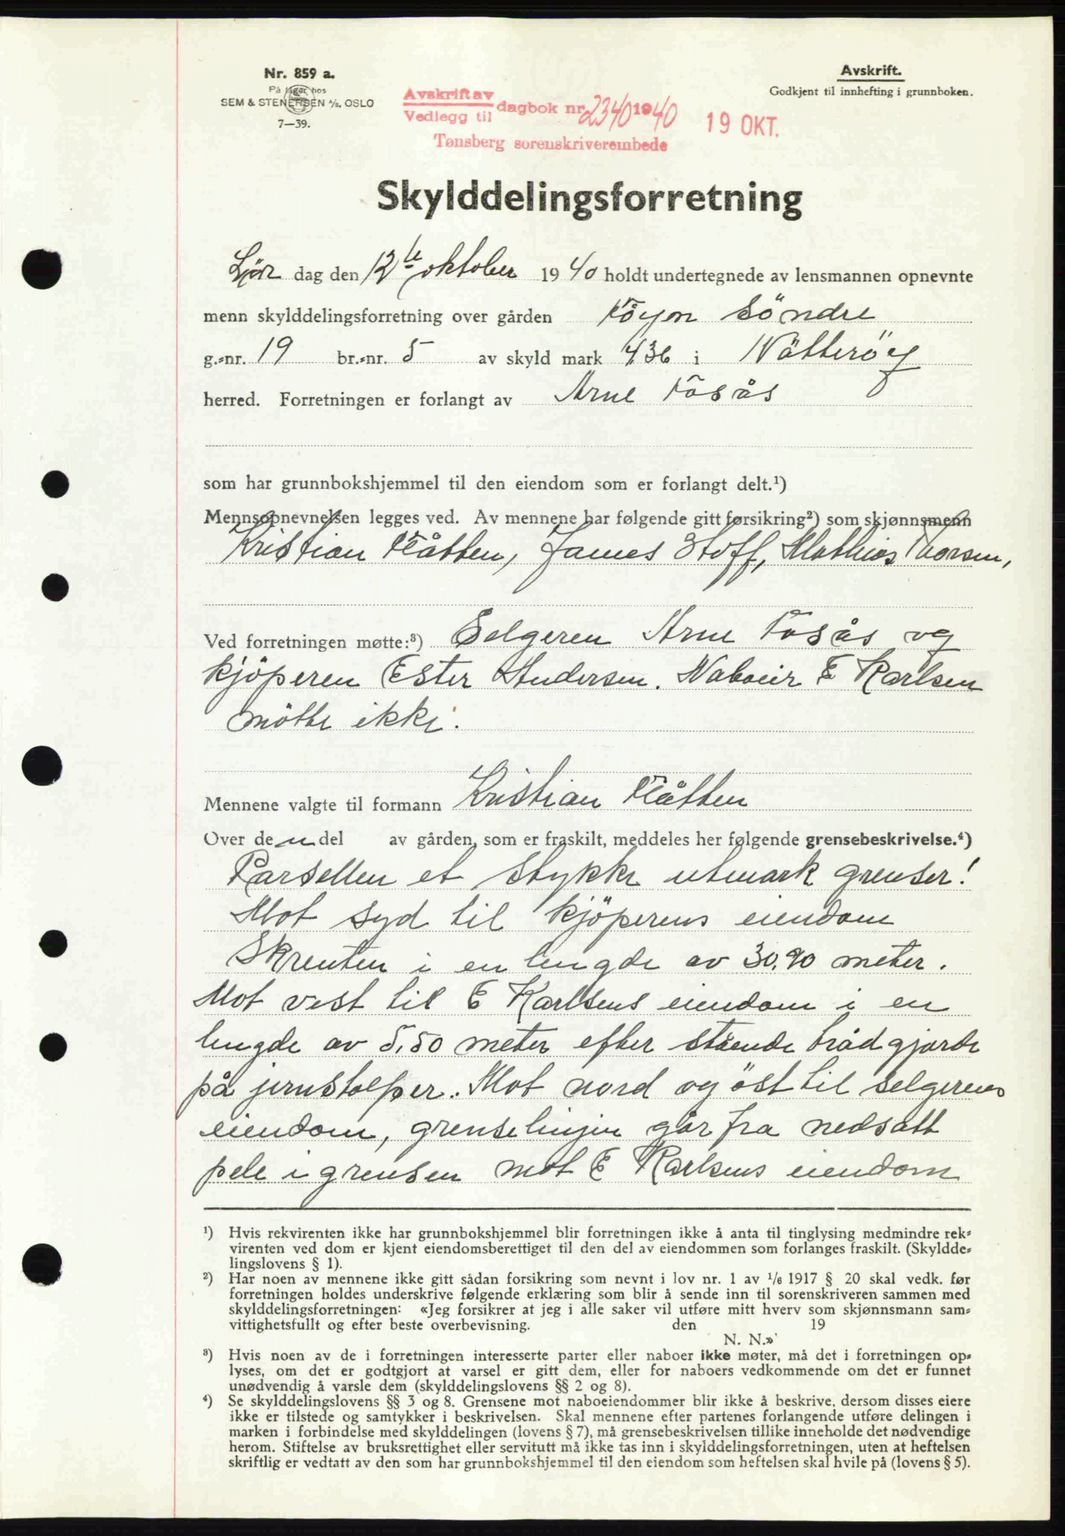 Nr. 859 a.
På lager hos
SEM & STENERSEN A/S. OSLO
7—39.
Avskrift.
Godkjent til innhefting i grunnboken.
Avskrift av
Vedlegg til dagbok nr. 2340 1940 19 OKT.
Tønsberg sorenskriverembede
Skylddelingsforretning
Lør dag den 12te oktober 1940 holdt undertegnede av lensmannen opnevnte
menn skylddelingsforretning over gården Föyn Söndre
g.-nr. 19 br.-nr. 5 av skyld mark 436 i Nötteröy
herred. Forretningen er forlangt av Arne Fosås
som har grunnbokshjemmel til den eiendom som er forlangt delt.¹)
Mennsopnevnelsen legges ved. Av mennene har følgende gitt forsikring²) som skjønnsmenn
Kristian Flåtten, James Hoff, Mathias Thorsen,
Ved forretningen møtte:³) Selgeren Arne Fosås og
kjöperen Ester Andersen. Naboeir E Karlsen
mötte ikke.
Mennene valgte til formann Kristian Flåtten
Over den del av gården, som er fraskilt, meddeles her følgende grensebeskrivelse.⁴)
Parsellen et stykke utmark grenser!
Mot syd til kjöperens eiendom
Skrenten i en lengde av 30.90 meter.
Mot vest til E Karlsens eiendom i en
lengde av 5,50 meter efter stående trådgjerde
på jernstolper. Mot nord og öst til selgerens
eiendom, grenselinjen går fra nedsatt
pele i grensen mot E Karlsens eiendom
¹) Hvis rekvirenten ikke har grunnbokshjemmel blir forretningen ikke å anta til tinglysing medmindre rek-
virenten ved dom er kjent eiendomsberettiget til den del av eiendommen som forlanges fraskilt. (Skyldde-
lingslovens § 1).
²) Har noen av mennene ikke gitt sådan forsikring som nevnt i lov nr. 1 av 1/6 1917 § 20 skal vedk. før
forretningen holdes underskrive følgende erklæring som blir å sende inn til sorenskriveren sammen med
skylddelingsforretningen: «Jeg forsikrer at jeg i alle saker vil utføre mitt hverv som skjønnsmann sam-
vittighetsfullt og efter beste overbevisning. den 19
N. N.»
³) Hvis noen av de i forretningen interesserte parter eller naboer ikke møter, må det i forretningen op-
lyses, om det er godtgjort at varsel er gitt dem, eller for naboers vedkommende om det er funnet
unødvendig å varsle dem (skylddelingslovens §§ 2 og 8).
⁴) Se skylddelingslovens §§ 3 og 8. Grensene mot naboeiendommer blir ikke å beskrive, dersom disses eiere
ikke er tilstede og samtykker i beskrivelsen. Skal mennene efter partenes forlangende utføre delingen i
marken i forbindelse med skylddelingen (lovens § 7), må grensebeskrivelsen tillike inneholde det nødvendige
herom. Stiftelse av bruksrettighet eller servitutt må ikke tas inn i skylddelingsforretningen, uten at heftelsen
skriftlig er vedtatt av den som har grunnbokshjemmel til den eiendom som heftelsen skal hvile på (lovens § 5).